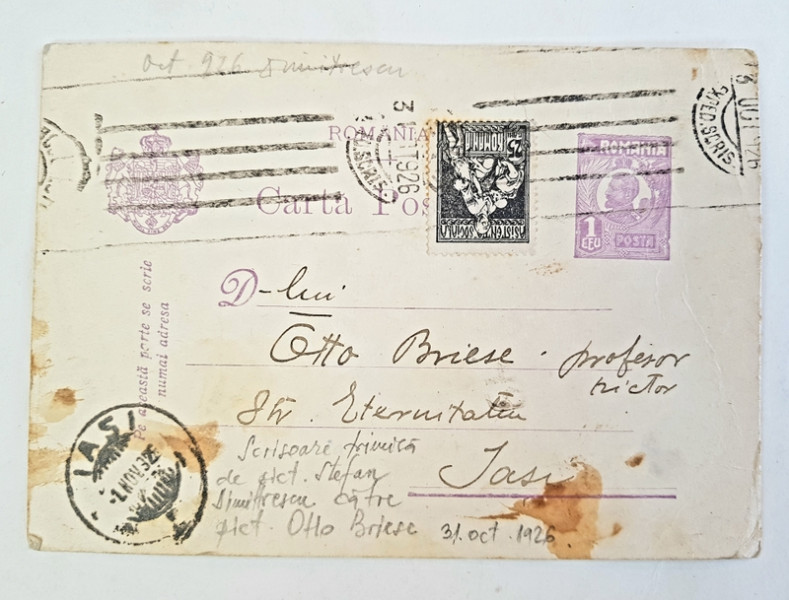 oct 926 Dimitrescu
EXPED. SCRIS
31 1926
EXPED. SCRIS
ROMANIA
Carta Pos
ROMANIA
25
ASISTENTA SOCIALA
ROMANIA
1
LEU
POSTA
Pe această parte se scrie
numai adresa
D-lui
Otto Briese · profesor
pictor
Str. Eternitatea
Iasi
IASI
1 NOV.
Scrisoare trimisă
de pict. Stefan
Dimitrescu către
pict. Otto Briese 31. oct. 1926